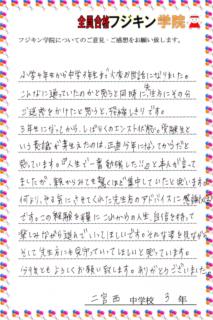 全員合格フジキン学院
フジキン学院についてのご意見・ご感想をお願い致します。
小学4年生から中学4年生まで大変お世話になりました。
こんなに通っていたのかと思うと同時に先生方にその分
ご迷惑をかけたと思うと、恐縮しきりです。
3年生になってから、しばらくのエンストが続き、受験生と
いう意識が芽生えたのは、正直今年になってからだと
思っています。「人生で一番勉強した!!」と本人が言って
ましたが、親からみても驚くほど集中していたと思います。
何より、やる気にさせてくれた先生方のアドバイスに感謝
です。この経験を糧に、これからの人生、自信を持って
楽しみながら送っていってほしいです。そんな姿を見ながら
そして先生方にも見守っていてほしいと思っています。
今後ともよろしくお願い致します。ありがとうございました。
二宮西 中学校 3年